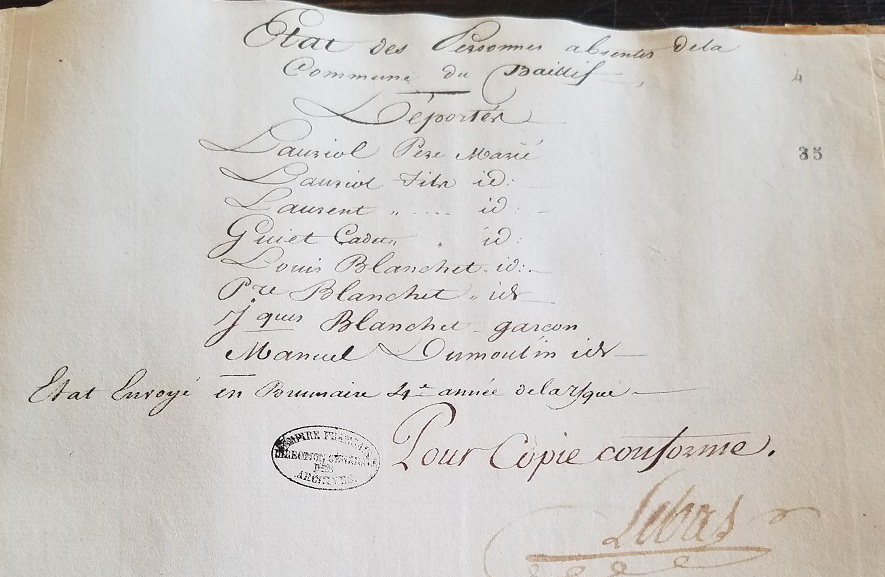 Etat des Personnes absentes dela
Commune du Baillif
4
Déportés
Lauriol Pere Marié
35
Lauriol fils id:
Laurent " .... id:
Guiet Cadet " id:
Louis Blanchet id:
Pre Blanchet " id
Jques Blanchet garcon
Manuel Dumoulin id
Etat Envoyé en Brumaire 4e année dela Rque
Pour Copie conforme.
EMPIRE FRANÇAIS
DIRECTION GÉNÉRALE
DES
ARCHIVES
Lebas